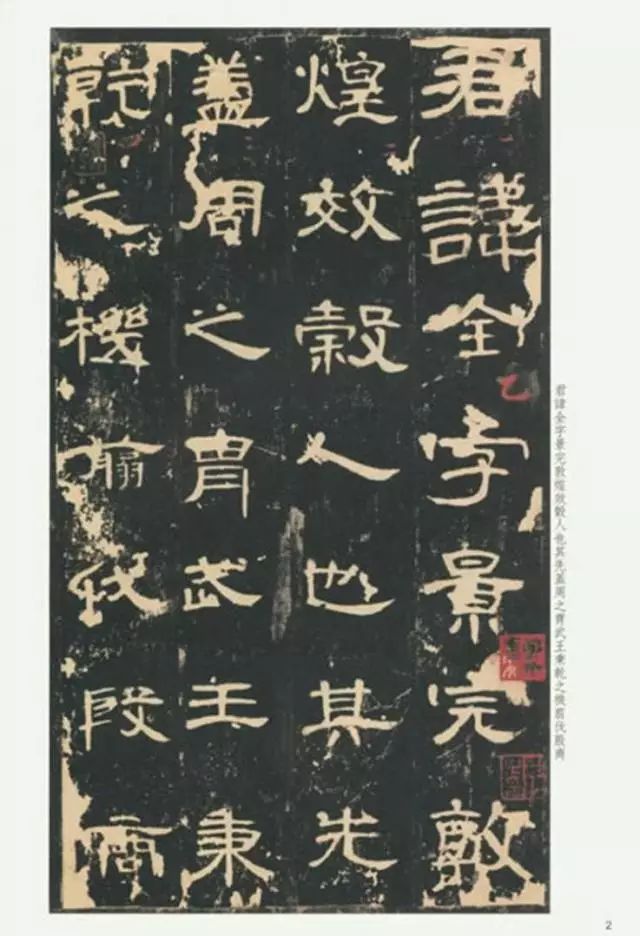 君諱全字景完敦
煌效穀人也其先
蓋周之胄武王秉
乾之機翦伐殷商
乙
君諱全字景完敦煌效穀人也其先蓋周之胄武王秉乾之機翦伐殷商
2